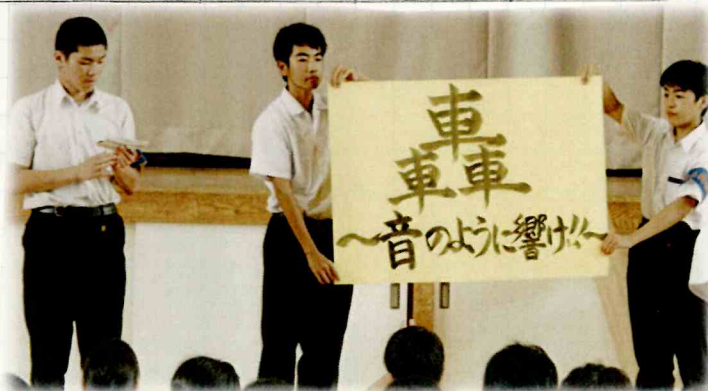 轟
～音のように響け!!～